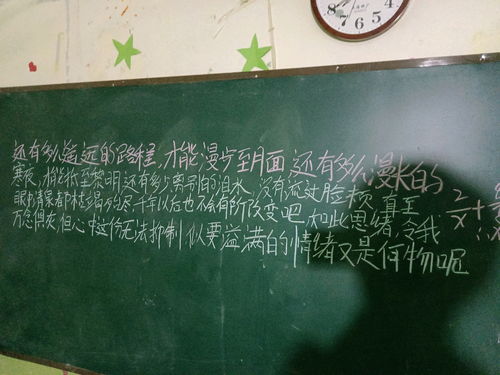 还有多么遥远的路程,才能漫步至月面 还有多么漫长的
寒夜,才能抵至黎明 还有多少离别的泪水,没有流过脸颊 直至
眼前清 千年以后也不会有所改变吧 如此思绪,令我
万念俱灰,但心中这份无法抑制 似要溢满的情绪又是何物呢
2/x +